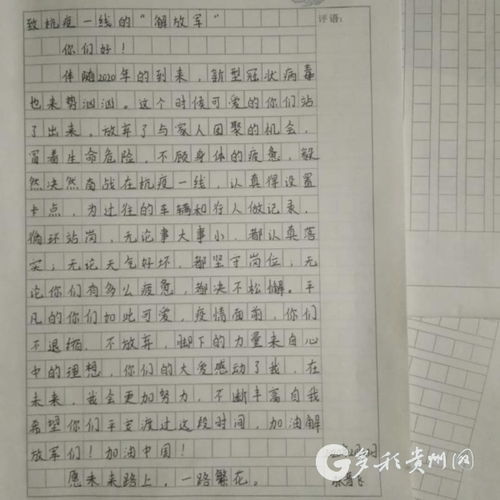 致抗疫一线的“解放军” 评语:
你们好!
伴随2020年的到来,新型冠状病毒
也来势汹汹。这个时候可爱的你们站
了出来,放弃了与家人团聚的机会,
冒着生命危险,不顾身体的疲惫,毅
然决然奋战在抗疫一线,认真得设置
卡点,为过往的车辆和行人做记录,
循环站岗,无论事大事小,都认真落
实,无论天气好坏,都坚守岗位,无
论你们有多么疲惫,都决不松懈。平
凡的你们如此可爱,疫情面前,你们
不退缩,不放弃,脚下的力量来自心
中的理想,你们的大爱感动了我,在
未来,我会更加努力,不断丰富自我
希望你们平安渡过这段时间,加油解
放军们!加油中国!
愿未来路上,一路繁花。
多彩贵州网